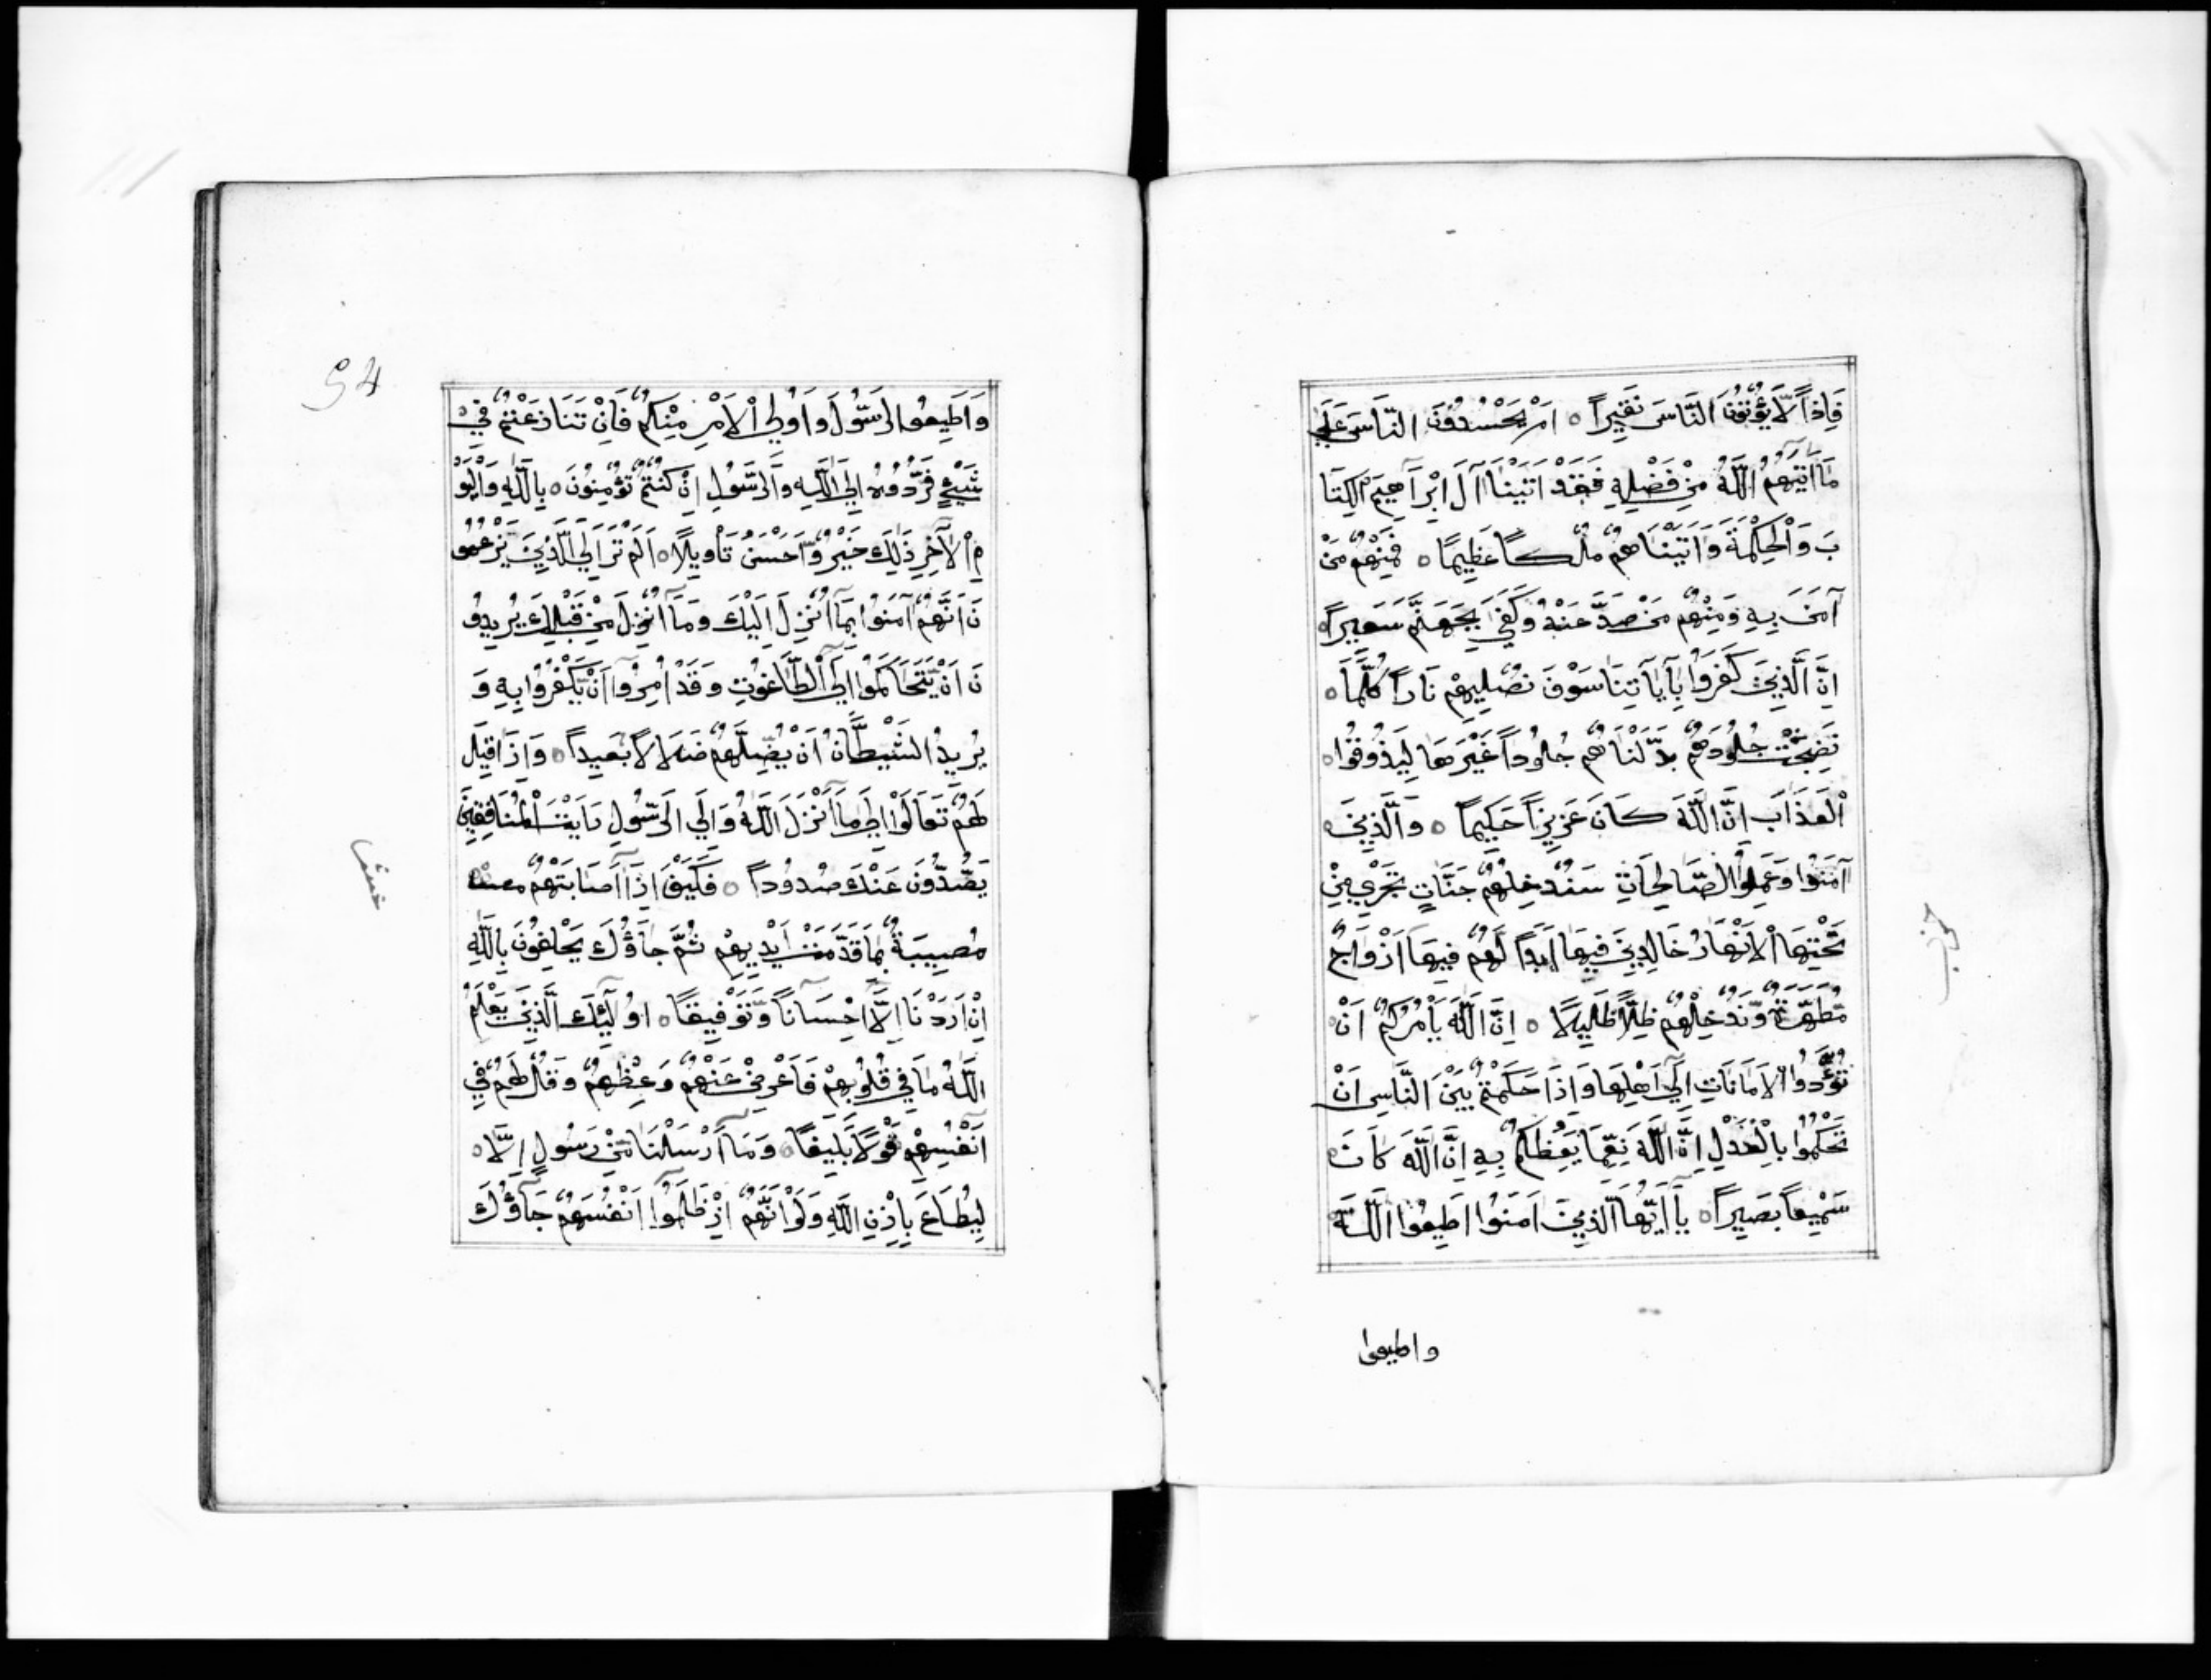 فَاِذاً لَّا يُؤْتُوْنَ النَّاسَ نَقِيْراً ○ اَمْ يَحْسُدُوْنَ النَّاسَ عَلَي
مَا اٰتٰيهُمُ اللّٰهُ مِنْ فَضْلِهِ فَقَدْ اٰتَيْنَا آلَ اِبْرَاهِيْمَ الْكِتَا
بَ وَالْحِكْمَةَ وَاٰتَيْنَاهُمْ مُلْكاً عَظِيْماً ○ فَمِنْهُمْ مَنْ
آمَنَ بِهِ وَمِنْهُمْ مَنْ صَدَّ عَنْهُ وَكَفَيٰ بِجَهَنَّمَ سَعِيْراً ○
اِنَّ الَّذِيْنَ كَفَرُوْا بِآيَاتِنَا سَوْفَ نُصْلِيْهِمْ نَاراً كُلَّمَا ○
نَضِجَتْ جُلُوْدُهُمْ بَدَّلْنَاهُمْ جُلُوْداً غَيْرَهَا لِيَذُوْقُوْا ○
الْعَذَابَ اِنَّ اللّٰهَ كَانَ عَزِيْزاً حَكِيْماً ○ وَالَّذِيْنَ ○
آمَنُوْا وَعَمِلُوا الصَّالِحَاتِ سَنُدْخِلُهُمْ جَنَّاتٍ تَجْرِيْ مِنْ
تَحْتِهَا الْاَنْهَارُ خَالِدِيْنَ فِيْهَا اَبَداً لَهُمْ فِيْهَا اَزْوَاجٌ
مُّطَهَّرَةٌ وَّنُدْخِلُهُمْ ظِلّاً ظَلِيْلًا ○ اِنَّ اللّٰهَ يَأْمُرُكُمْ اَنْ
تُؤَدُّوا الْاَمَانَاتِ اِلَيٰ اَهْلِهَا وَاِذَا حَكَمْتُمْ بَيْنَ النَّاسِ اَنْ
تَحْكُمُوْا بِالْعَدْلِ اِنَّ اللّٰهَ نِعِمَّا يَعِظُكُمْ بِهِ اِنَّ اللّٰهَ كَانَ
سَمِيْعاً بَصِيْراً ○ يَا اَيُّهَا الَّذِيْنَ اٰمَنُوْا اَطِيْعُوا اللّٰهَ
واطيعوا
حزب
54
وَاَطِيْعُوا الرَّسُوْلَ وَاُولِي الْاَمْرِ مِنْكُمْ فَاِنْ تَنَازَعْتُمْ فِيْ
شَيْءٍ فَرُدُّوْهُ اِلَي اللّٰهِ وَالرَّسُوْلِ اِنْ كُنْتُمْ تُؤْمِنُوْنَ ○ بِاللّٰهِ وَالْيَوْ
مِ الْآخِرِ ذٰلِكَ خَيْرٌ وَّاَحْسَنُ تَأْوِيْلًا ○ اَلَمْ تَرَ اِلَي الَّذِيْنَ يَزْعُمُو
نَ اَنَّهُمْ آمَنُوْا بِمَا اُنْزِلَ اِلَيْكَ وَمَا اُنْزِلَ مِنْ قَبْلِكَ يُرِيْدُو
نَ اَنْ يَّتَحَاكَمُوْا اِلَي الطَّاغُوْتِ وَقَدْ اُمِرُوْا اَنْ يَّكْفُرُوْا بِهِ وَ
يُرِيْدُ الشَّيْطَانُ اَنْ يُضِلَّهُمْ ضَلَالًا بَعِيْداً ○ وَاِذَا قِيْلَ
لَهُمْ تَعَالَوْا اِلَيٰ مَا اَنْزَلَ اللّٰهُ وَاِلَي الرَّسُوْلِ رَاَيْتَ الْمُنَافِقِيْنَ
يَصُدُّوْنَ عَنْكَ صُدُوْداً ○ فَكَيْفَ اِذَا اَصَابَتْهُمْ
مُصِيْبَةٌ بِمَا قَدَّمَتْ اَيْدِيْهِمْ ثُمَّ جَاؤُكَ يَحْلِفُوْنَ بِاللّٰهِ
اِنْ اَرَدْنَا اِلَّا اِحْسَاناً وَّتَوْفِيْقاً ○ اُولٰٓئِكَ الَّذِيْنَ يَعْلَمُ
اللّٰهُ مَا فِيْ قُلُوْبِهِمْ فَاَعْرِضْ عَنْهُمْ وَعِظْهُمْ وَقُلْ لَهُمْ فِيْ
اَنْفُسِهِمْ قَوْلًا بَلِيْغاً ○ وَمَا اَرْسَلْنَا مِنْ رَسُوْلٍ اِلَّا ○
لِيُطَاعَ بِاِذْنِ اللّٰهِ وَلَوْ اَنَّهُمْ اِذْ ظَلَمُوْا اَنْفُسَهُمْ جَاؤُكَ